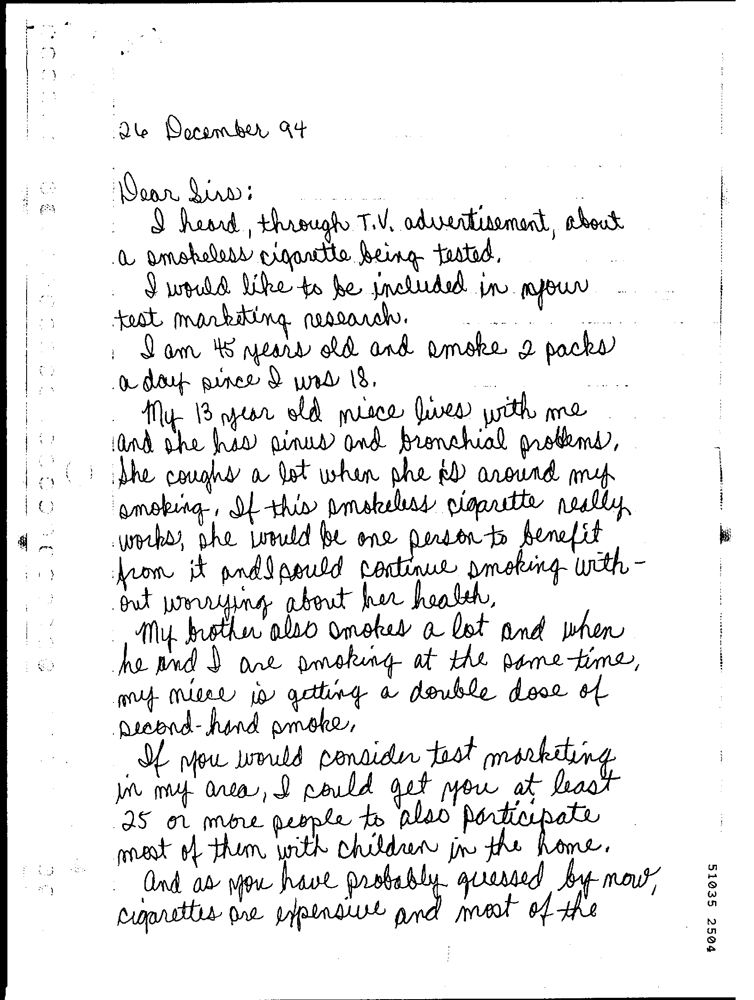 26 December 94
Dear Sirs:
I heard, through T.V. advertisement, about
a smokeless cigarette being tested.
I would like to be included in your
test marketing research.
I am 45 years old and smoke 2 packs
a day since I was 18.
My 13 year old niece lives with me
and she has sinus and bronchial problems.
She coughs a lot when she is around my
smoking. If this smokeless cigarette really
works, she would be one person to benefit
from it and I could continue smoking with-
out worrying about her health.
My brother also smokes a lot and when
he and I are smoking at the same time,
my niece is getting a double dose of
second-hand smoke.
If you would consider test marketing
in my area, I could get you at least
25 or more people to also participate
most of them with children in the home.
And as you have probably guessed by now,
cigarettes are expensive and most of the
51035 2504